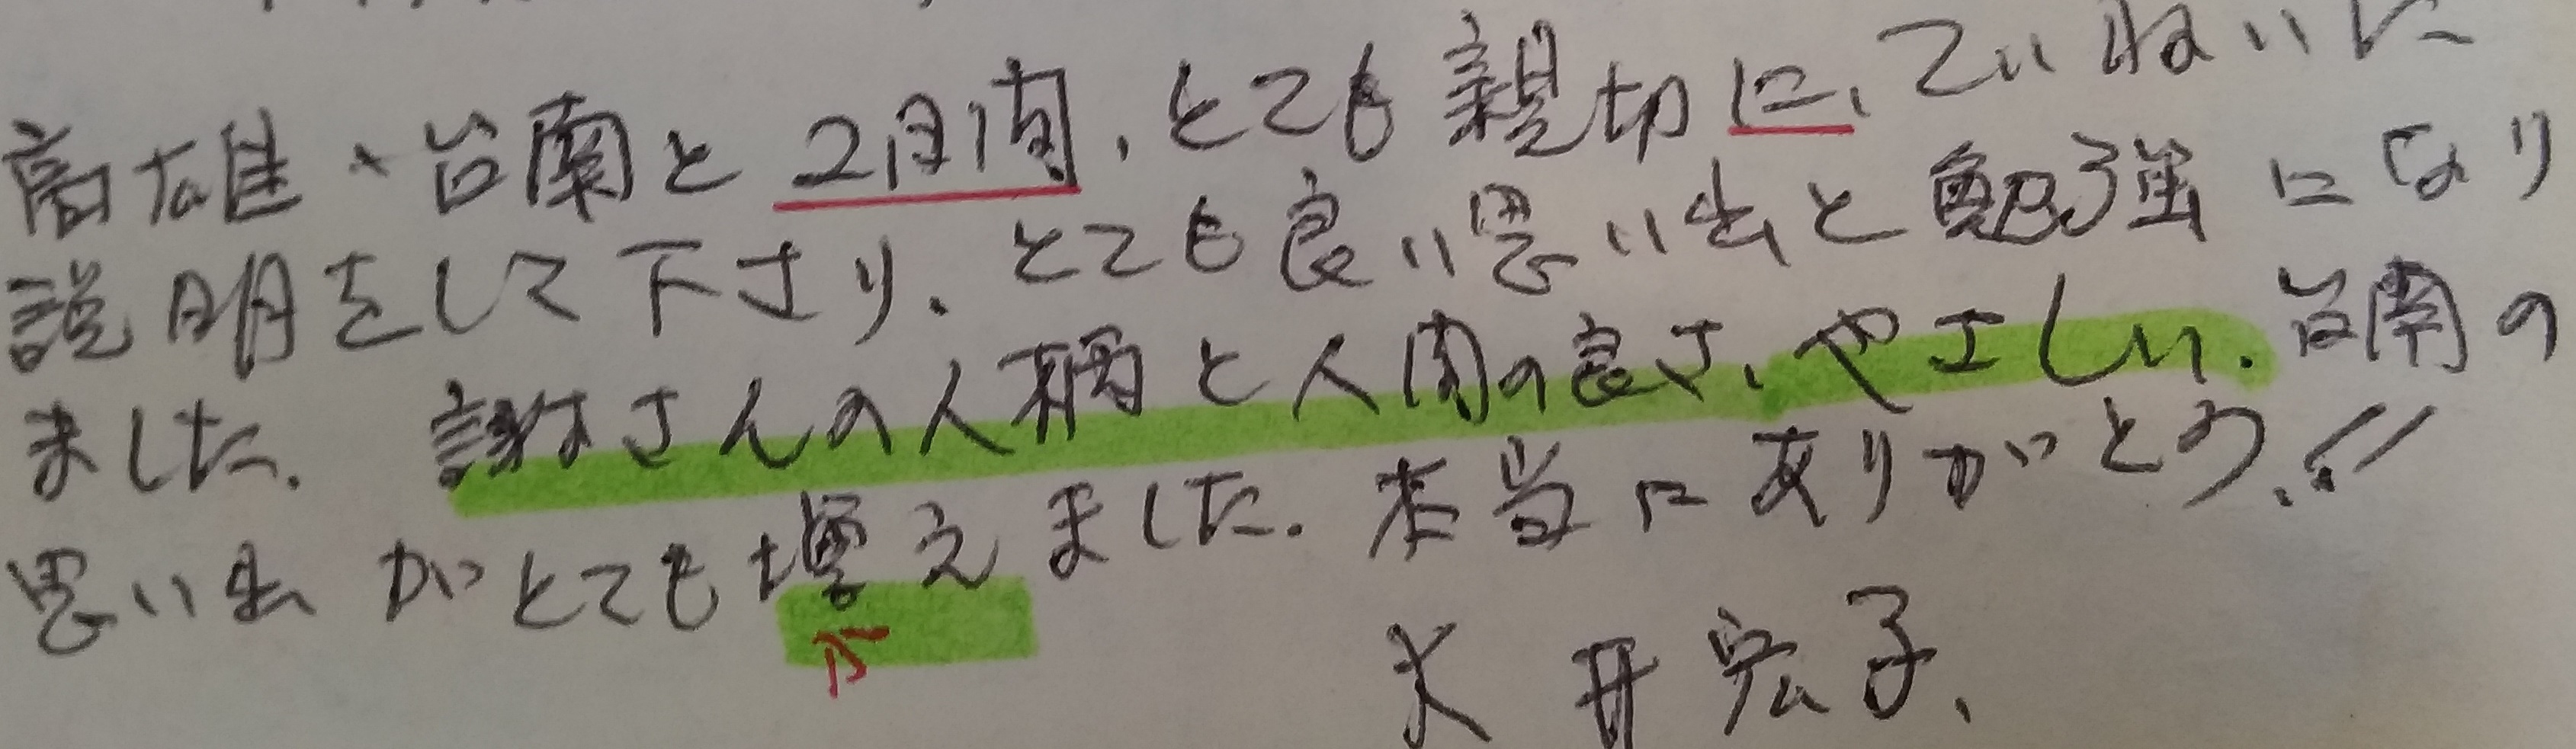 高雄、台南と2日間、とても親切に、ていねいに
説明をして下さり、とても良い思い出と勉強になり
ました。謝さんの人柄と人間の良さ、やさしい、台南の
思い出がとても増えました。本当にありがとう!!
ふ
井宏子、